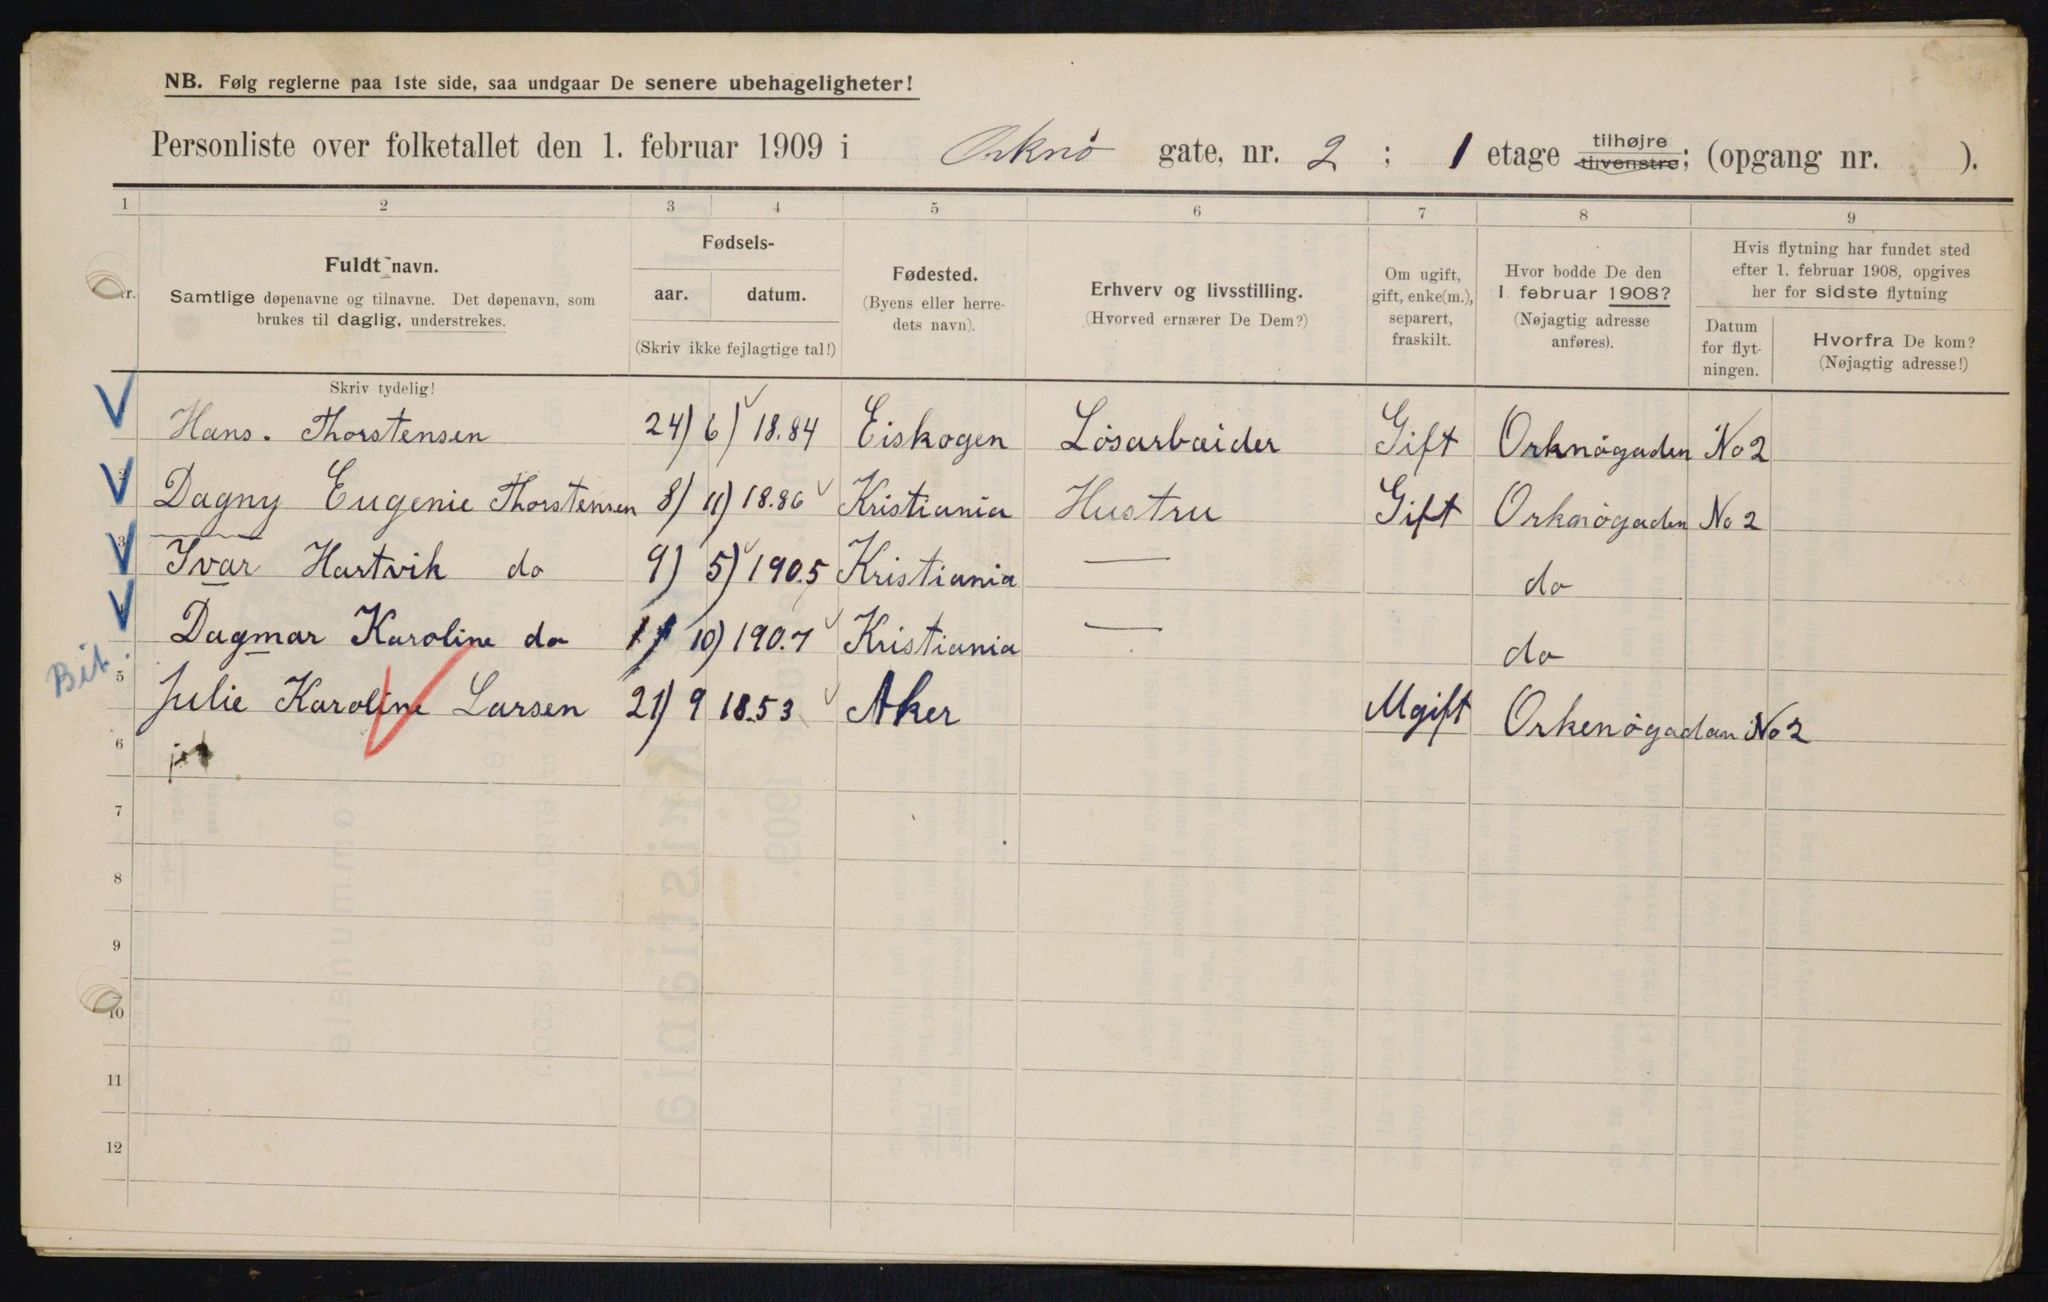 NB. Følg reglerne paa 1ste side, saa undgaar De senere ubehageligheter!
Personliste over folketallet den 1. februar 1909 i Orknö gate, nr. 2 ; 1 etage tilhøjre tilvenstre; (opgang nr. ).
1 2 3 4 5 6 7 8 9
Fuldt navn.
Samtlige døpenavne og tilnavne. Det døpenavn, som
brukes til daglig, understrekes.
Fødsels-
aar. datum.
(Skriv ikke fejlagtige tal!)
Fødested.
(Byens eller herre-
dets navn).
Erhverv og livsstilling.
(Hvorved ernærer De Dem?)
Om ugift,
gift, enke(m.),
separert,
fraskilt.
Hvor bodde De den
1. februar 1908?
(Nøjagtig adresse
anføres).
Hvis flytning har fundet sted
efter 1. februar 1908, opgives
her for sidste flytning
Datum
for flyt-
ningen.
Hvorfra De kom?
(Nøjagtig adresse!)
Skriv tydelig!
Hans. Thorstensen 24) 6) 18.84 Eiskogen Lösarbæider Gift Orknögaden No 2
Dagny Eugenie Thorstensen 8) 11) 18.86 Kristiania Hustru Gift Orknögaden No 2
3 Ivar Hartvik do 9) 5) 190.5 Kristiania — do
Dagmar Karoline do 11 10) 190.7 Kristiania — do
Bit.
5 Julie Karoline Larsen 21) 9 18.53 Aker Ugift Orkenögadan No 2
6
7
8
9
10
11
12